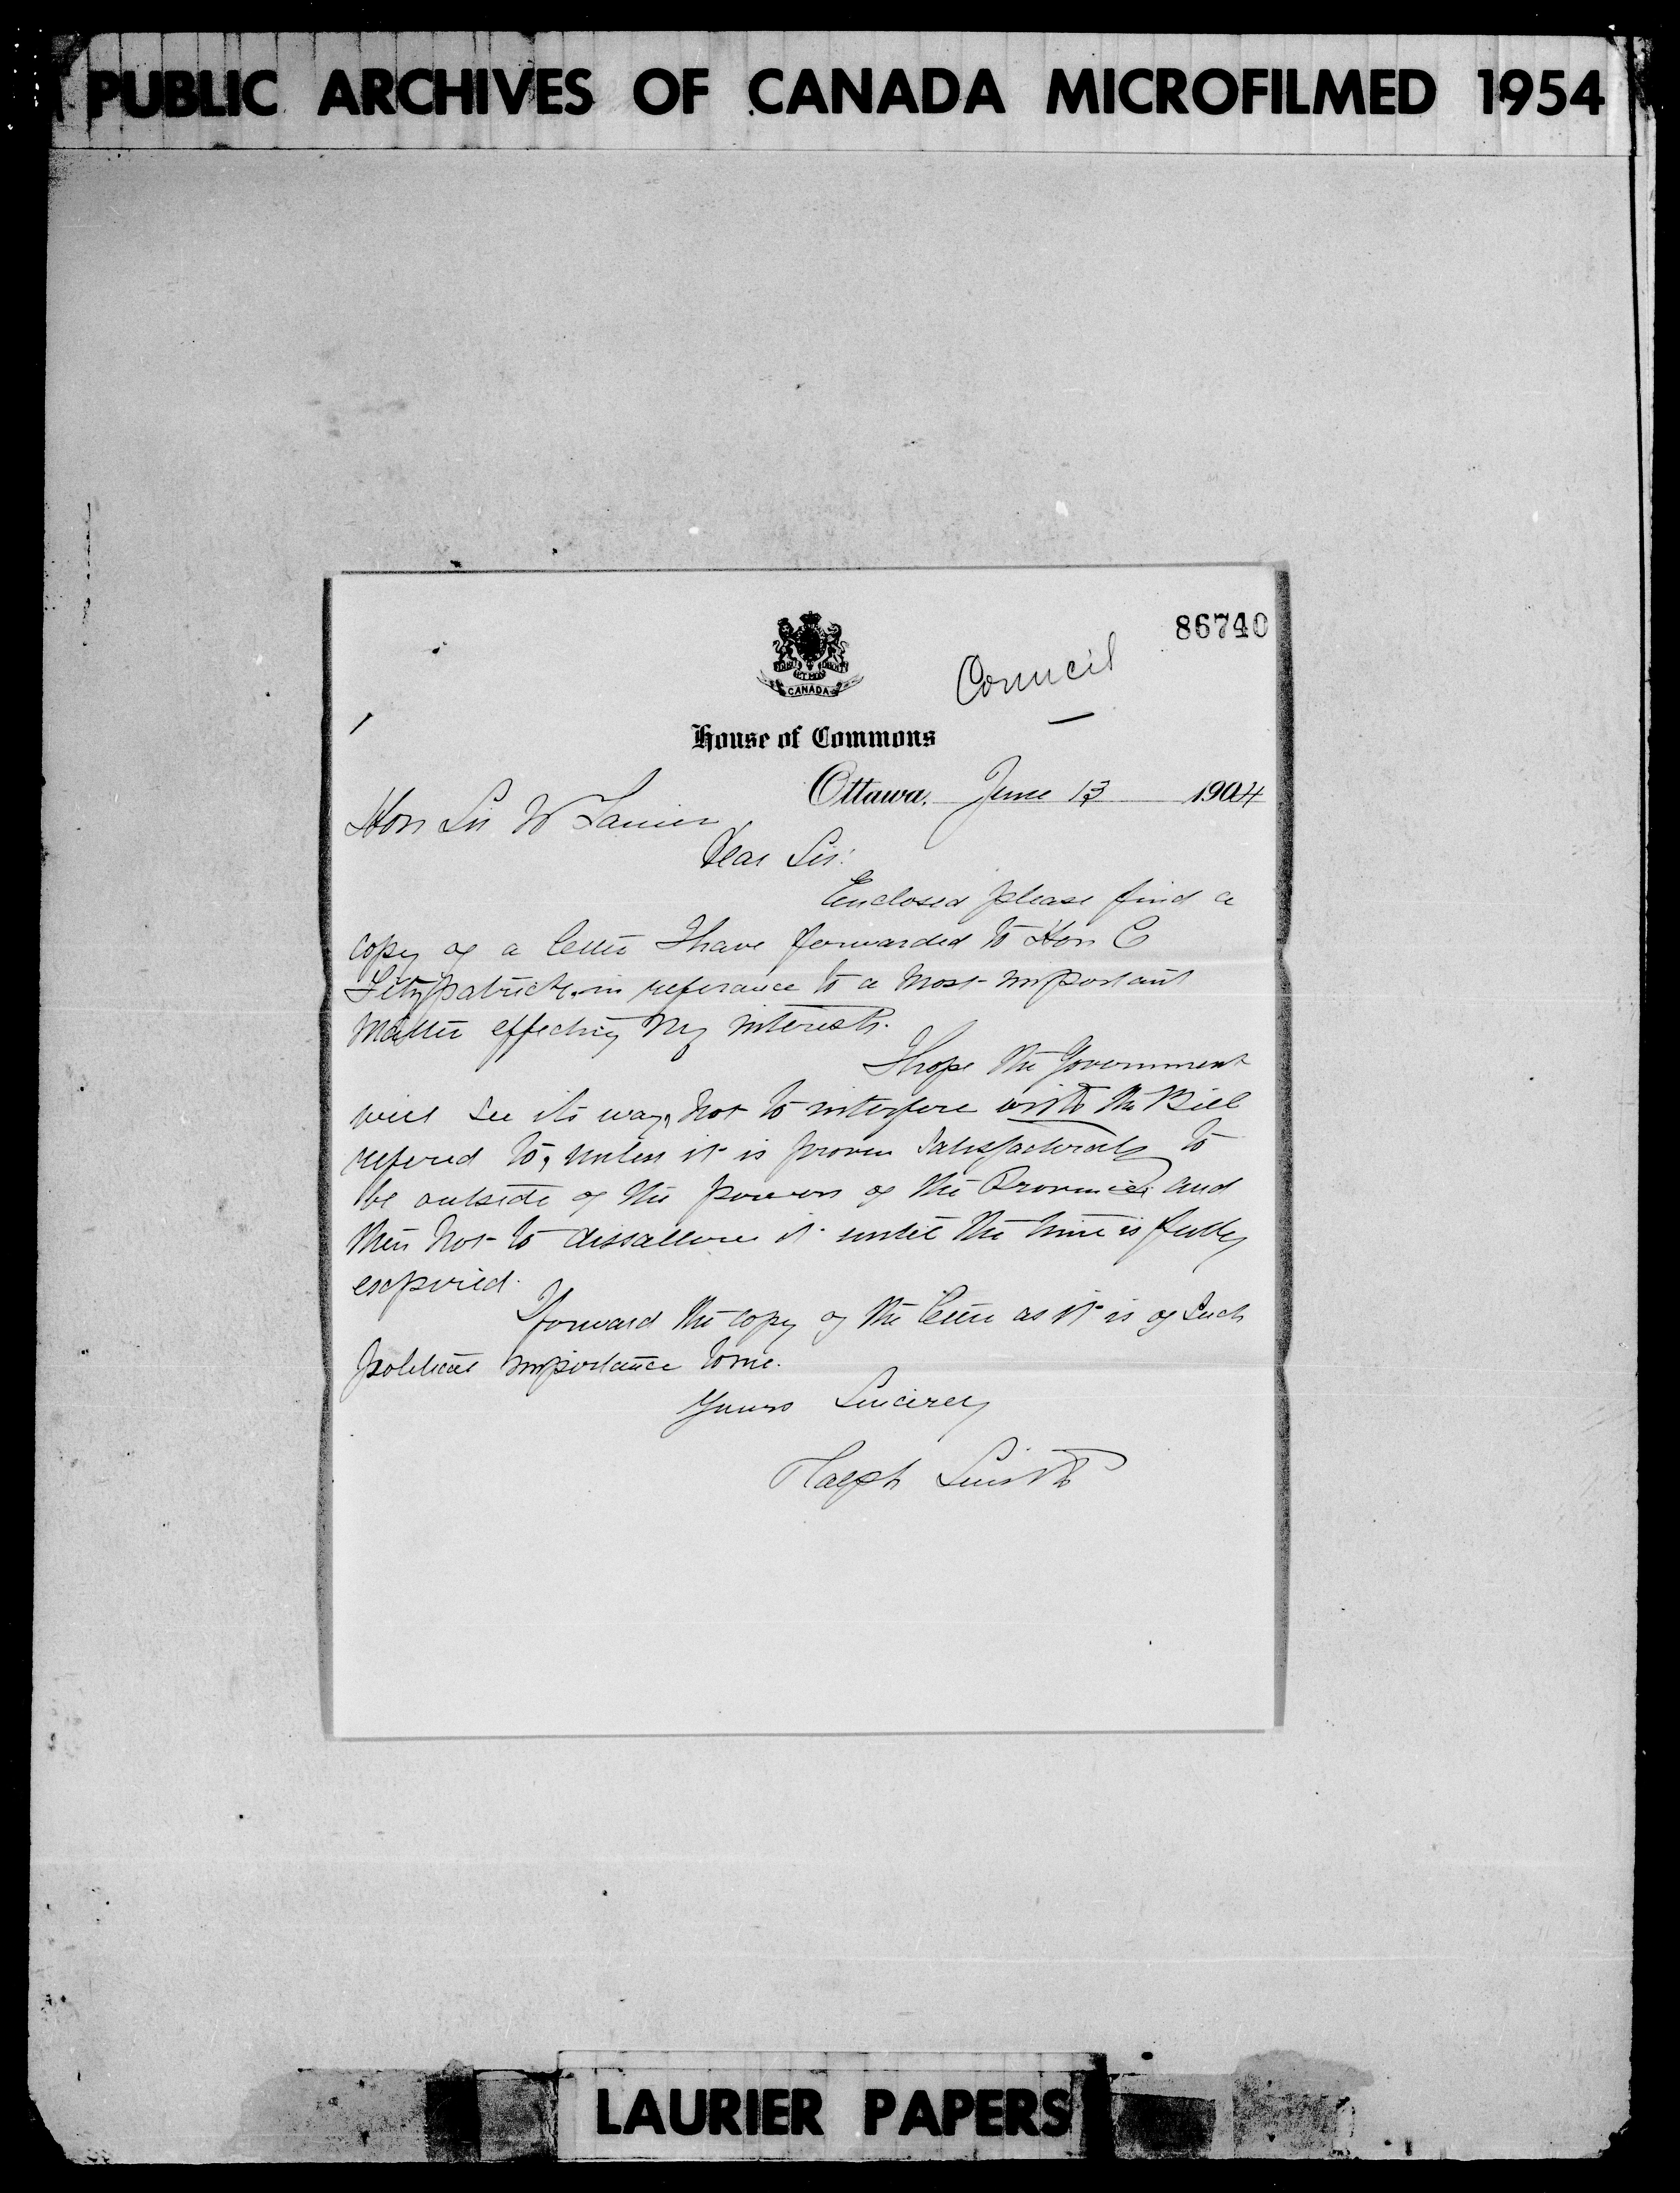 PUBLIC ARCHIVES OF CANADA MICROFILMED 1954
86740
Council
CANADA
House of Commons
Ottawa, June 13 1904
Hon Sir W Laurier
Dear Sir:
Enclosed please find a
copy of a letter I have forwarded to Hon C
Fitzpatrick, in referance to a most important
matter effecting my interests.
I hope the Government
will see its way, not to interfere with the Bill
refered to, unless it is proven satisfactorily to
be outside of the powers of the Province and
then not to dissallow it until the time is fully
expired.
I forward the copy of the letter as it is of such
political importance to me.
Yours Sincerely
Ralph Smith
LAURIER PAPERS